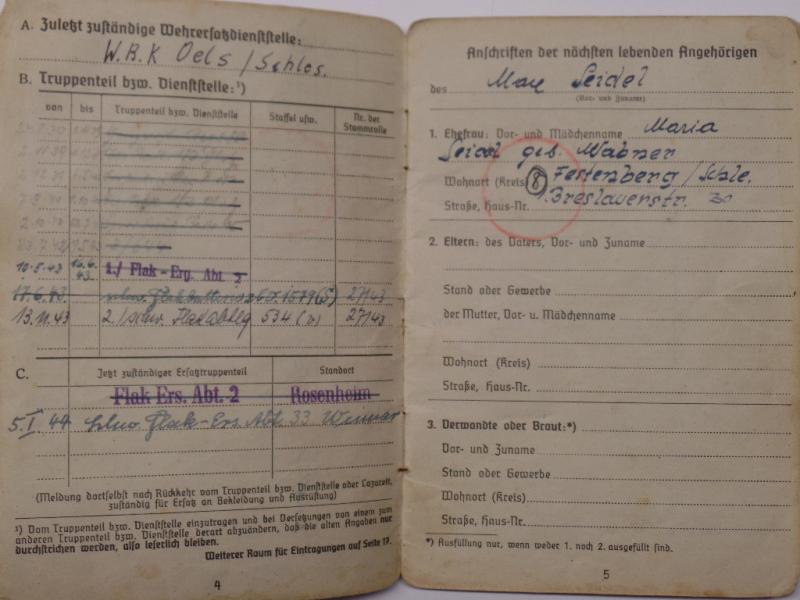 A. Zuletzt zuständige Wehrersatzdienststelle:
W.B.K Oels / Schles.
B. Truppenteil bzw. Dienststelle:¹)
von bis Truppenteil bzw. Dienststelle Staffel usw. Nr. der Stammrolle
10.5.43 16.6.43 1./ Flak-Erg. Abt. 2
17.6.43 schw. 27/43
13.11.43 2./schw. Flakabtlg 534 (v) 27/43
C. Jetzt zuständiger Ersatztruppenteil Standort
Flak Ers. Abt. 2 Rosenheim
5. I 44 schw. Flak-Ers. Abt. 33 Weimar
(Meldung dortselbst nach Rückkehr vom Truppenteil bzw. Dienststelle oder Lazarett,
zuständig für Ersatz an Bekleidung und Ausrüstung)
¹) Vom Truppenteil bzw. Dienststelle einzutragen und bei Versetzungen von einem zum
anderen Truppenteil bzw. Dienststelle derart abzuändern, daß die alten Angaben nur
durchstrichen werden, also leserlich bleiben.
Weiterer Raum für Eintragungen auf Seite 17.
4
Anschriften der nächsten lebenden Angehörigen
des Max Seidel
(Vor- und Zuname)
1. Ehefrau: Vor- und Mädchenname Maria
Seidel geb. Wabner
Wohnort (Kreis) 8 Festenberg / Schle.
Straße, Haus-Nr. Breslauerstr. 30
2. Eltern: des Vaters, Vor- und Zuname
Stand oder Gewerbe
der Mutter, Vor- u. Mädchenname
Wohnort (Kreis)
Straße, Haus-Nr.
3. Verwandte oder Braut:*)
Vor- und Zuname
Stand oder Gewerbe
Wohnort (Kreis)
Straße, Haus-Nr.
*) Ausfüllung nur, wenn weder 1. noch 2. ausgefüllt sind.
5